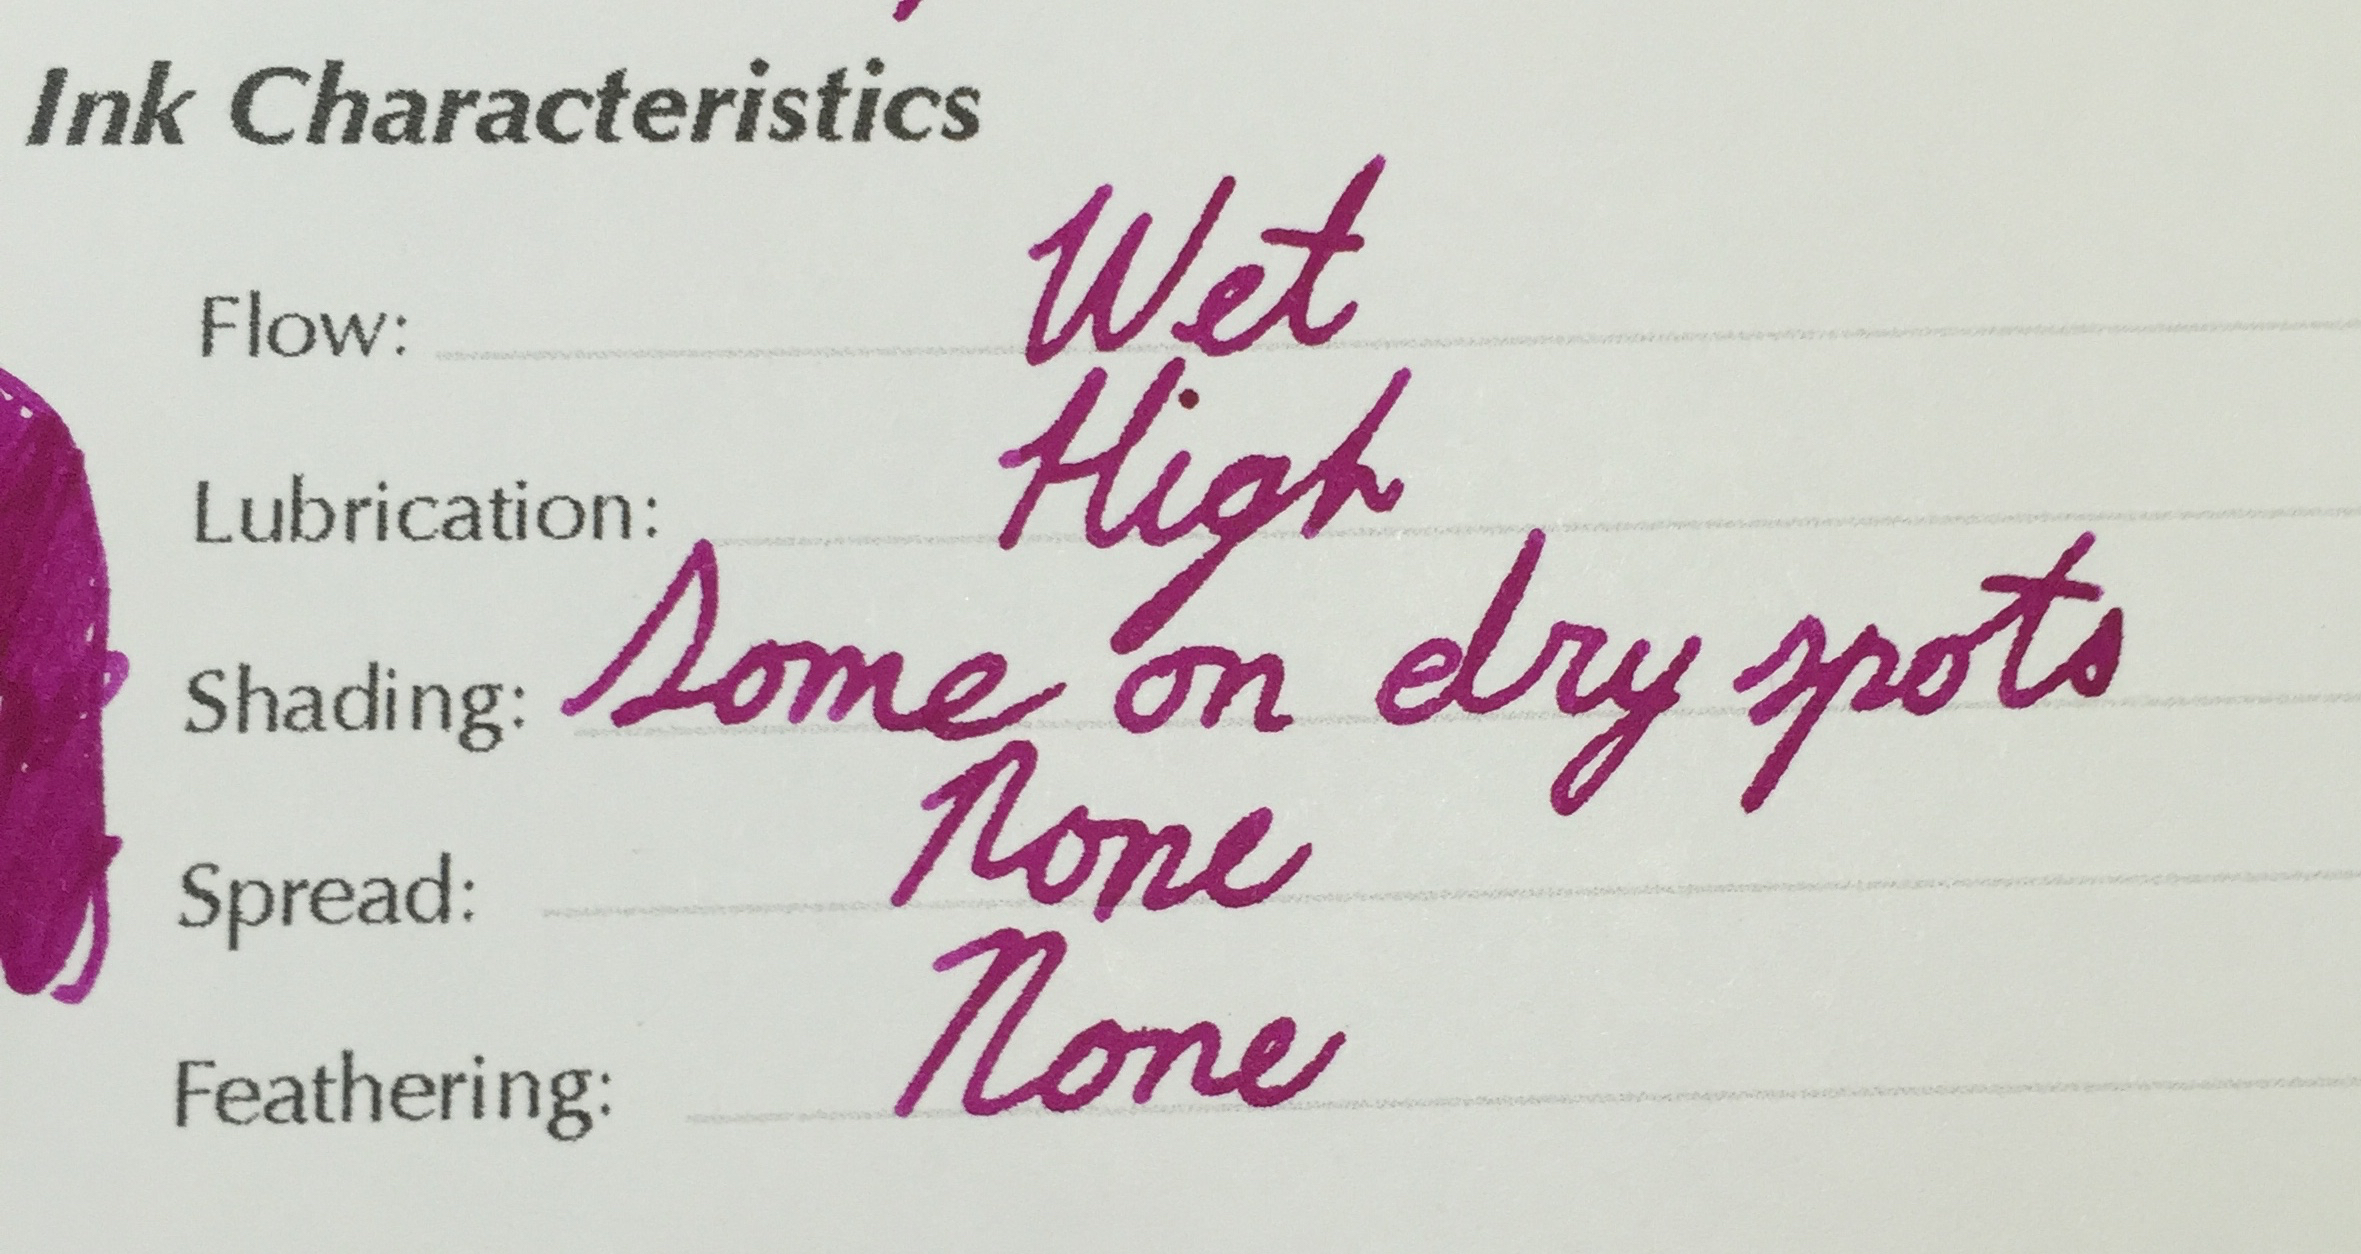 Ink Characteristics
Flow: Wet
Lubrication: High
Shading: Some on dry spots
Spread: None
Feathering: None